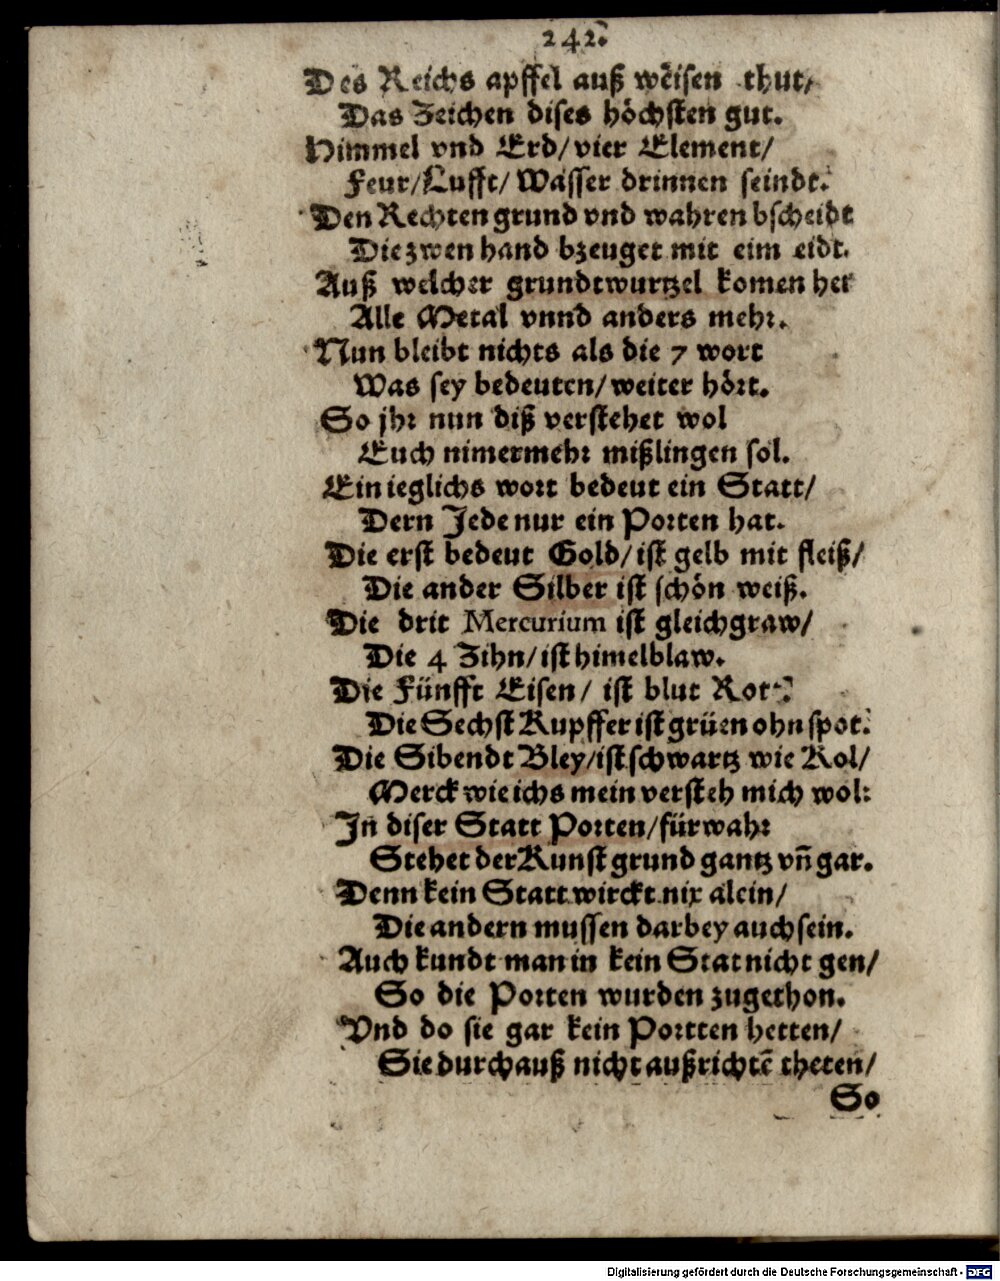 242.
Des Reichs apffel auß weisen thut/
Das Zeichen dises höchsten gut.
Himmel vnd Erd/vier Element/
Feur/Lufft/Wasser drinnen seindt.
Den Rechten grund vnd wahren bscheidt
Die zwen hand bzeuget mit eim eidt.
Auß welcher grundtwurtzel komen her
Alle Metal vnnd anders mehr.
Nun bleibt nichts als die 7 wort
Was sey bedeuten/weiter hört.
So jhr nun diß verstehet wol
Euch nimermehr mißlingen sol.
Ein ieglichs wort bedeut ein Statt/
Dern Jede nur ein Porten hat.
Die erst bedeut Gold/ist gelb mit fleiß/
Die ander Silber ist schön weiß.
Die drit Mercurium ist gleichgraw/
Die 4 Zihn/ist himelblaw.
Die Fünfft Eisen/ ist blut Rot.
Die Sechst Kupffer ist grüen ohn spot.
Die Sibendt Bley/ist schwartz wie Kol/
Merck wie ichs mein versteh mich wol:
In diser Statt Porten/fürwahr
Stehet der Kunst grund gantz vñ gar.
Denn kein Statt wirckt nix alein/
Die andern mussen darbey auch sein.
Auch kundt man in kein Stat nicht gen/
So die Porten wurden zugethon.
Vnd do sie gar kein Portten hetten/
Sie durchauß nicht außrichtẽ theten/
So
Digitalisierung gefördert durch die Deutsche Forschungsgemeinschaft - DFG